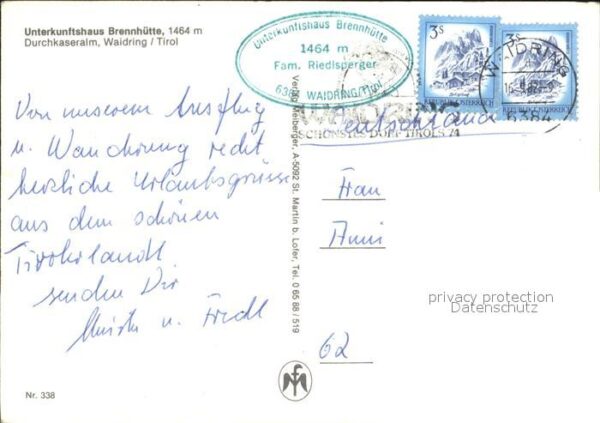 Unterkunftshaus Brennhütte, 1464 m
Durchkaseralm, Waidring / Tirol
Unterkunftshaus Brennhütte
1464 m
Fam. Riedlsperger
6384 WAIDRING/Tirol
3s
REPUBLIK ÖSTERREICH
3s
REPUBLIK ÖSTERREICH
WAIDRING
6384
SCHÖNSTES DORF TIROLS 74
Deutschland
Von unserem Ausflug
u. Wanderung recht
herzliche Urlaubsgrüsse
aus dem schönen
Tirolerlandl
senden Dir
u. Fredl
Verlag Reiberger, A-5092 St. Martin b. Lofer, Tel. 0 65 88 / 519
Frau
Anni
62
privacy protection
Datenschutz
Nr. 338